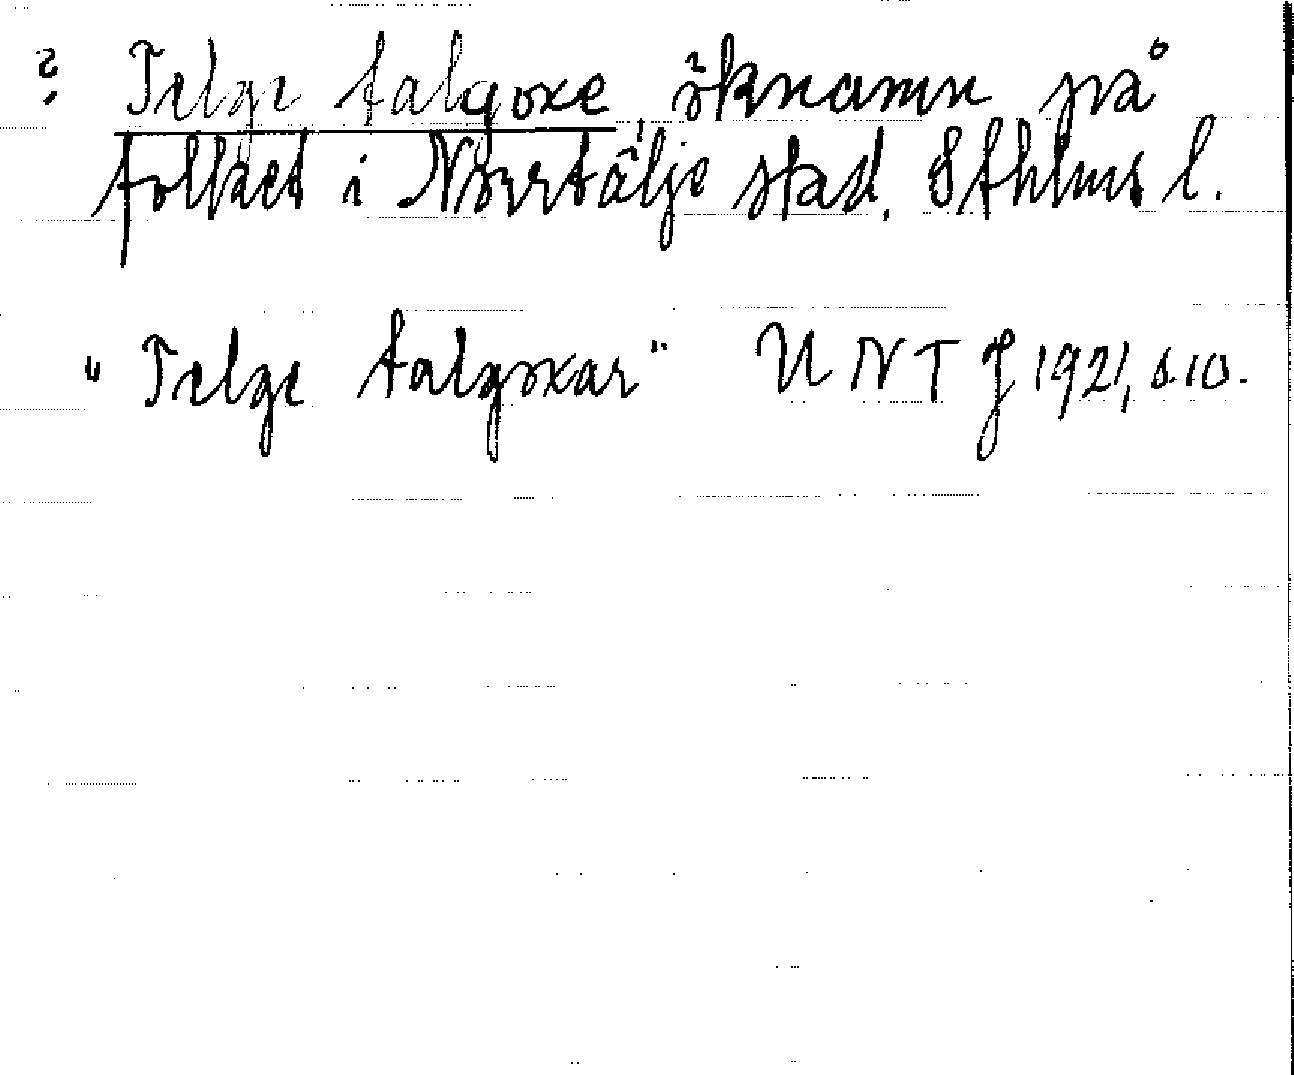 ? Telge talgoxe, öknamn på
folket i Norrtälje stad, Sthlms l.
"Telge talgoxar" UNT J 1921, s.10.